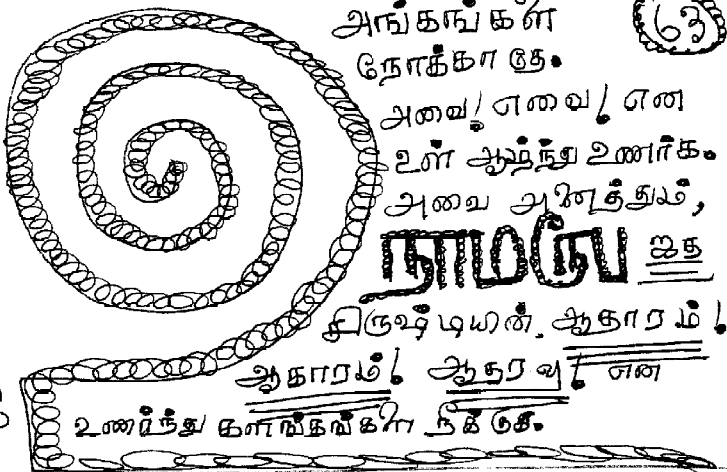 உ
அங்கங்கள்
அவை! எவை! என
உள் ஆழ்ந்து உணர்க.
அவை அனைத்தும்,
சிருஷ்டியின் ஆதாரம்!
ஆகாரம்! ஆதரவு! என
உணர்ந்து களங்கங்களை நீக்குக.